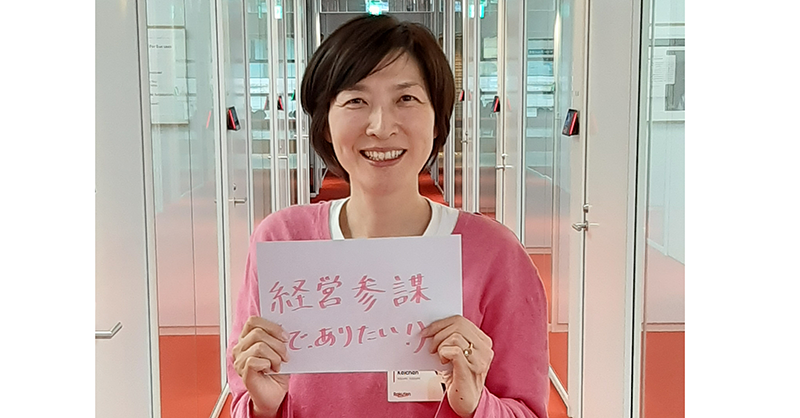 経営参謀
で、ありたい!
Keichan
Rakuten